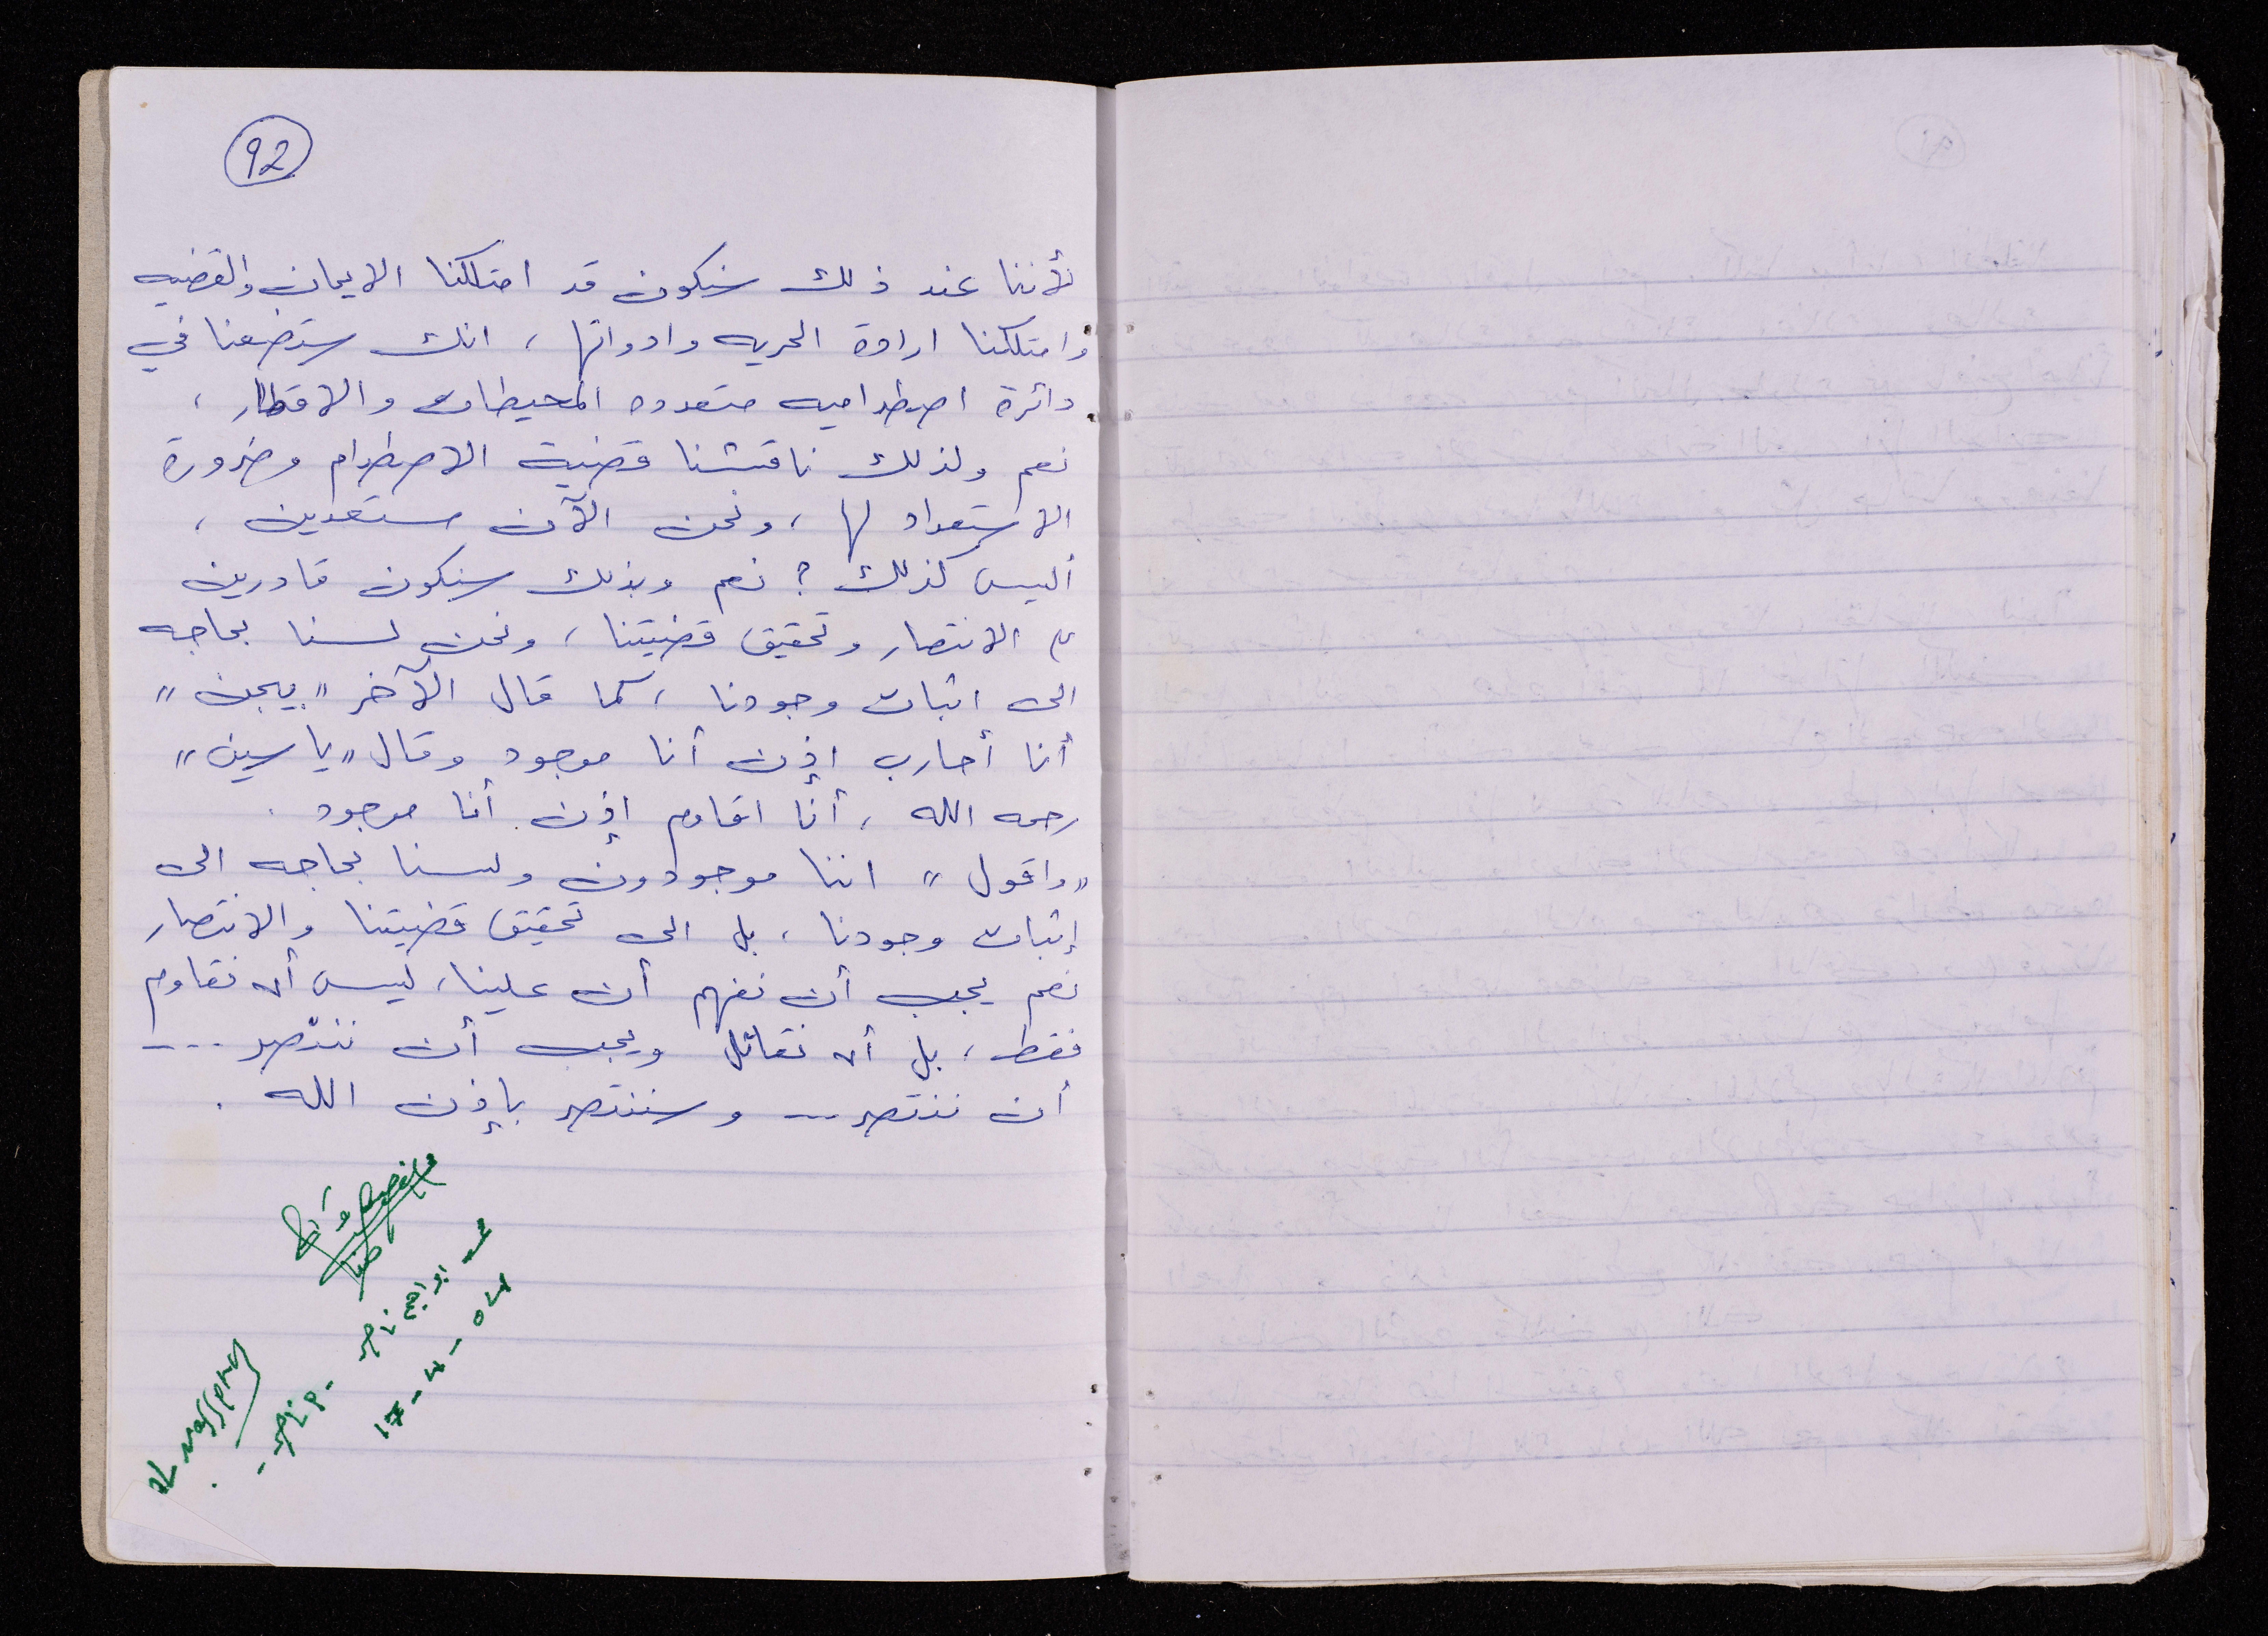 92
لأننا عند ذلك سنكون قد امتلكنا الايمان والقضيه
وامتلكنا ارادة الحريه وادواتها ، انك ستضعنا في
دائرة اصطداميه متعدده المحيطات والاقطار ،
نعم ولذلك ناقشنا قضية الاصطدام وضرورة
الاستعداد لها ، ونحن الآن مستعدين ،
أليس كذلك ؟ نعم وبذلك سنكون قادرين
على الانتصار وتحقيق قضيتنا ، ونحن لسنا بحاجه
الى اثبات وجودنا ، كما قال الآخر "بيجن"
أنا أحارب إذن أنا موجود وقال "ياسين"
رحمه الله ، أنا اقاوم إذن أنا موجود .
"واقول" اننا موجودون ولسنا بحاجه الى
إثبات وجودنا ، بل الى تحقيق قضيتنا والانتصار
نعم يجب أن نفهم أن علينا ، ليس أن نقاوم
فقط ، بل أن نقاتل ويجب أن ننتصر ....
أن ننتصر ... وسننتصر بإذن الله .